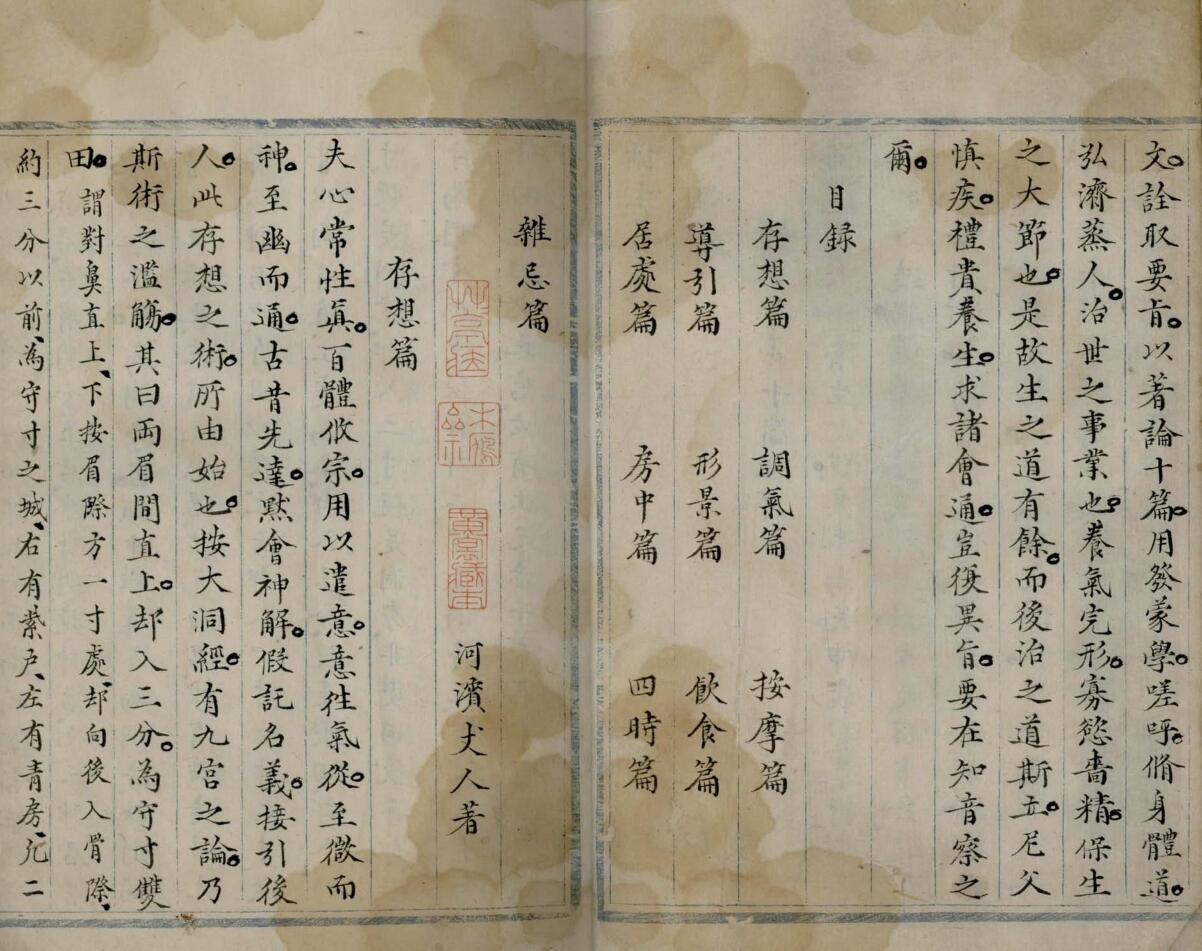 文詮取要旨以著論十篇用發蒙學嗟呼脩身體道
弘濟蒸人治世之事業也養氣完形寡慾嗇精保生
之大節也是故生之道有餘而後治之道斯立尼父
慎疾禮貴養生求諸會通豈復異旨要在知音察之
爾
目録
存想篇 調氣篇 按摩篇
導引篇 形景篇 飲食篇
居處篇 房中篇 四時篇
雜忌篇
河濱丈人著
存想篇
夫心常性真百體攸宗用以遣意意徃氣從至微而
神至幽而通古昔先達默會神解假託名義接引後
人此存想之術所由始也按大洞經有九宮之論乃
斯術之濫觴其曰両眉間直上却入三分為守寸雙
田謂對鼻直上下按眉際方一寸處却向後入骨際
約三分以前為守寸之城右有紫戸左有青房凢二